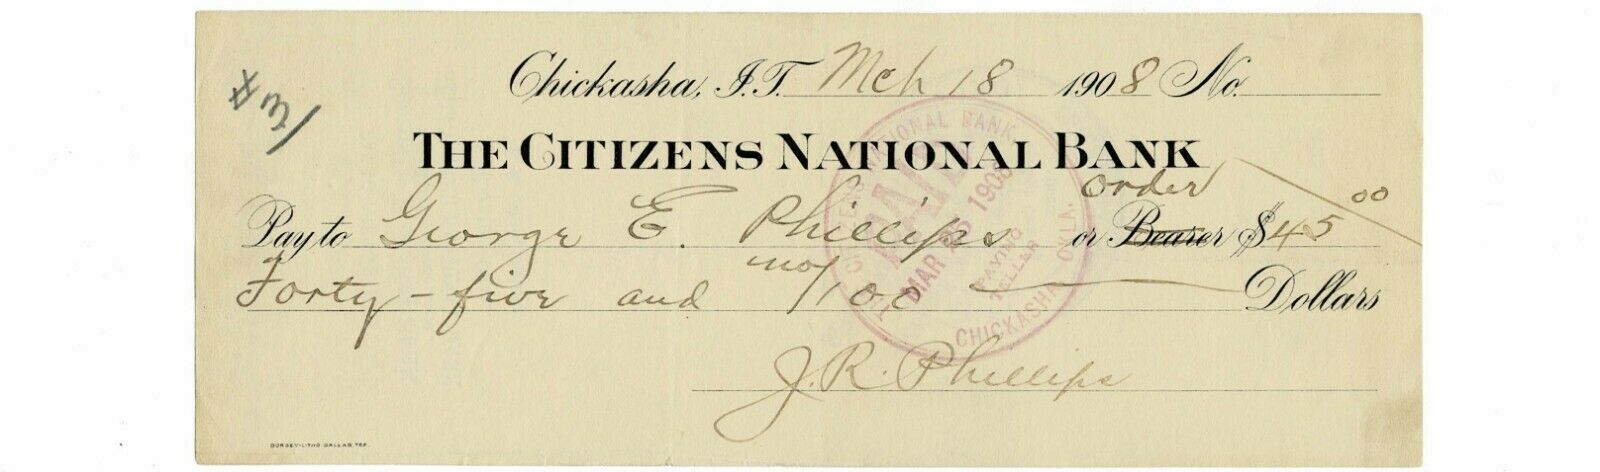 #31
Chickasha, I.T. Mch 18 1908 No.
THE CITIZENS NATIONAL BANK
Order
Pay to George E. Phillips or Bearer $45 00
Forty-five and no/100 Dollars
J. R. Phillips
CITIZENS NATIONAL BANK
PAID
MAR 1908
PAYING
TELLER
CHICKASHA OKLA.
DORSEY LITHO. DALLAS, TEX.